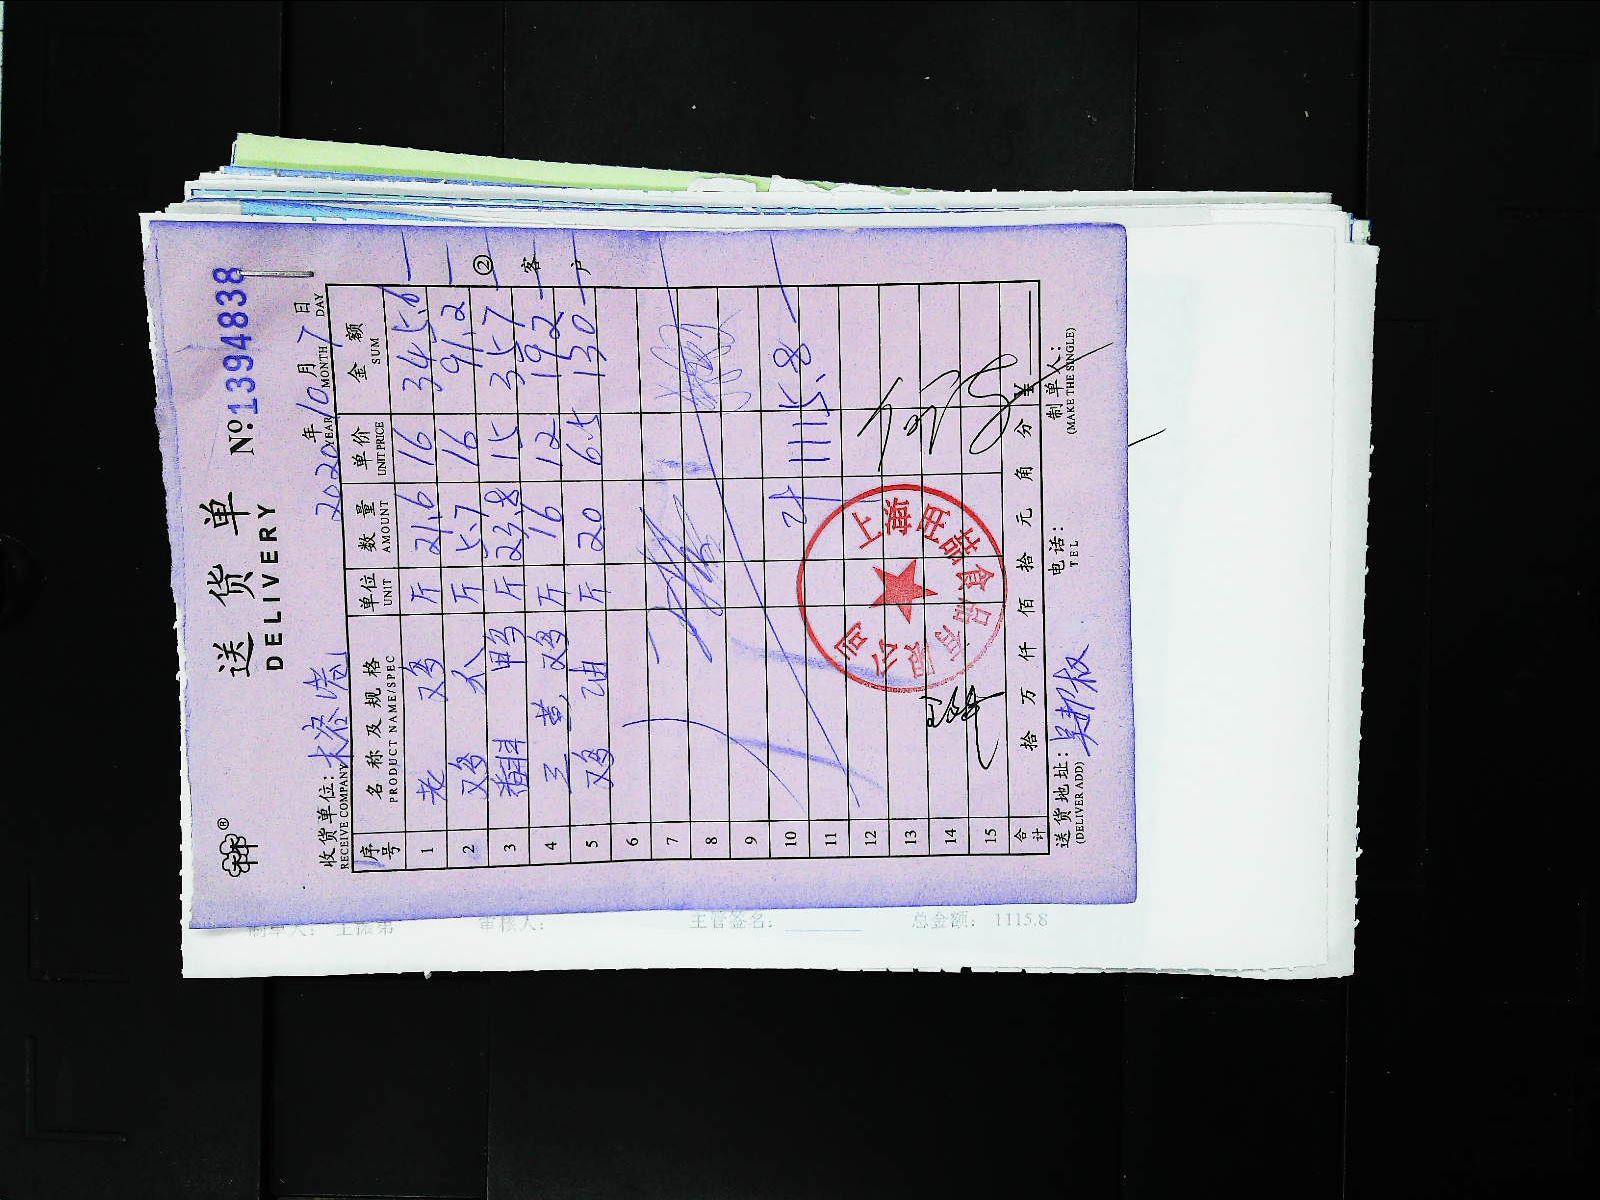 送货单
DELIVERY
№:1394838
收货单位:
RECEIVE COMPANY
2020年10月7日
YEAR MONTH DAY
序号 名称及规格 单位 数量 单价 金额
PRODUCT NAME/SPEC UNIT AMOUNT UNIT PRICE SUM
1 老鸡 斤 21.6 16 345.6
2 鸡 斤 5.7 16 91.2
3 鸭 斤 23.8 15 357
4 三黄鸡 斤 16 12 192
5 鸡油 斤 20 6.5 130
6
7
8
9
10 计 1115.8
11
12
13
14
15
合计 拾 万 仟 佰 拾 元 角 分 ¥
送货地址: 电话: 制单人:
(DELIVER ADD) TEL (MAKE THE SINGLE)
②客户
上海 食品有限公司
审核人: 主管签名: 总金额: 1115.8